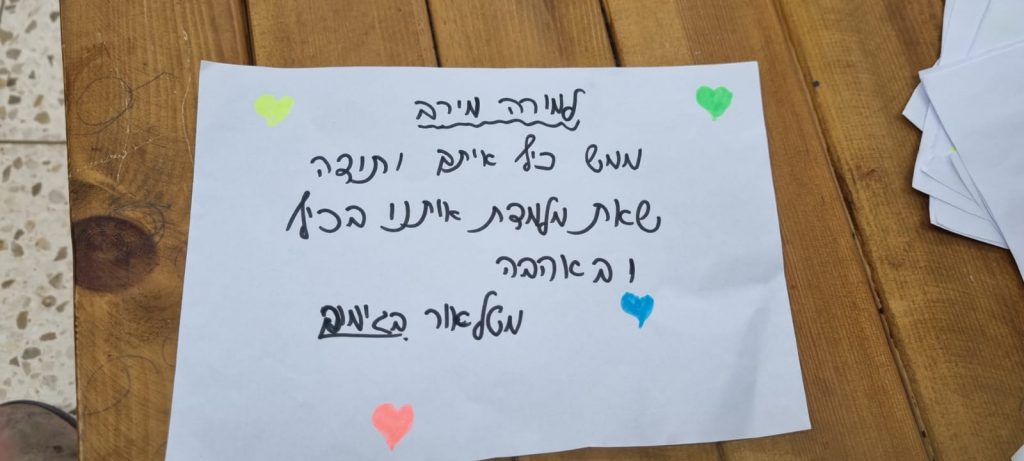 למורה מירב
ממש כיף איתך ותודה
שאת מלמדת אותנו בכיף
ובאהבה
מטלאור